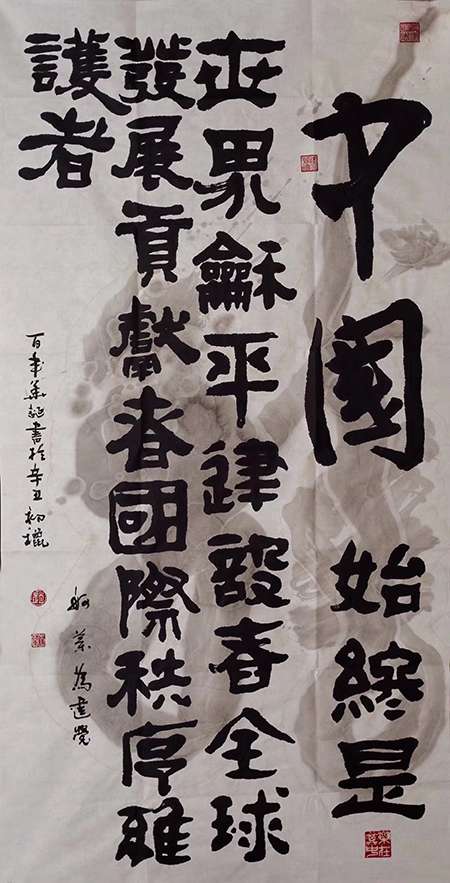 中國始終是
世界龢平建設者全球
發展貢獻者國際秩序維
護者
為建黨
百年華誕書於辛丑初臘